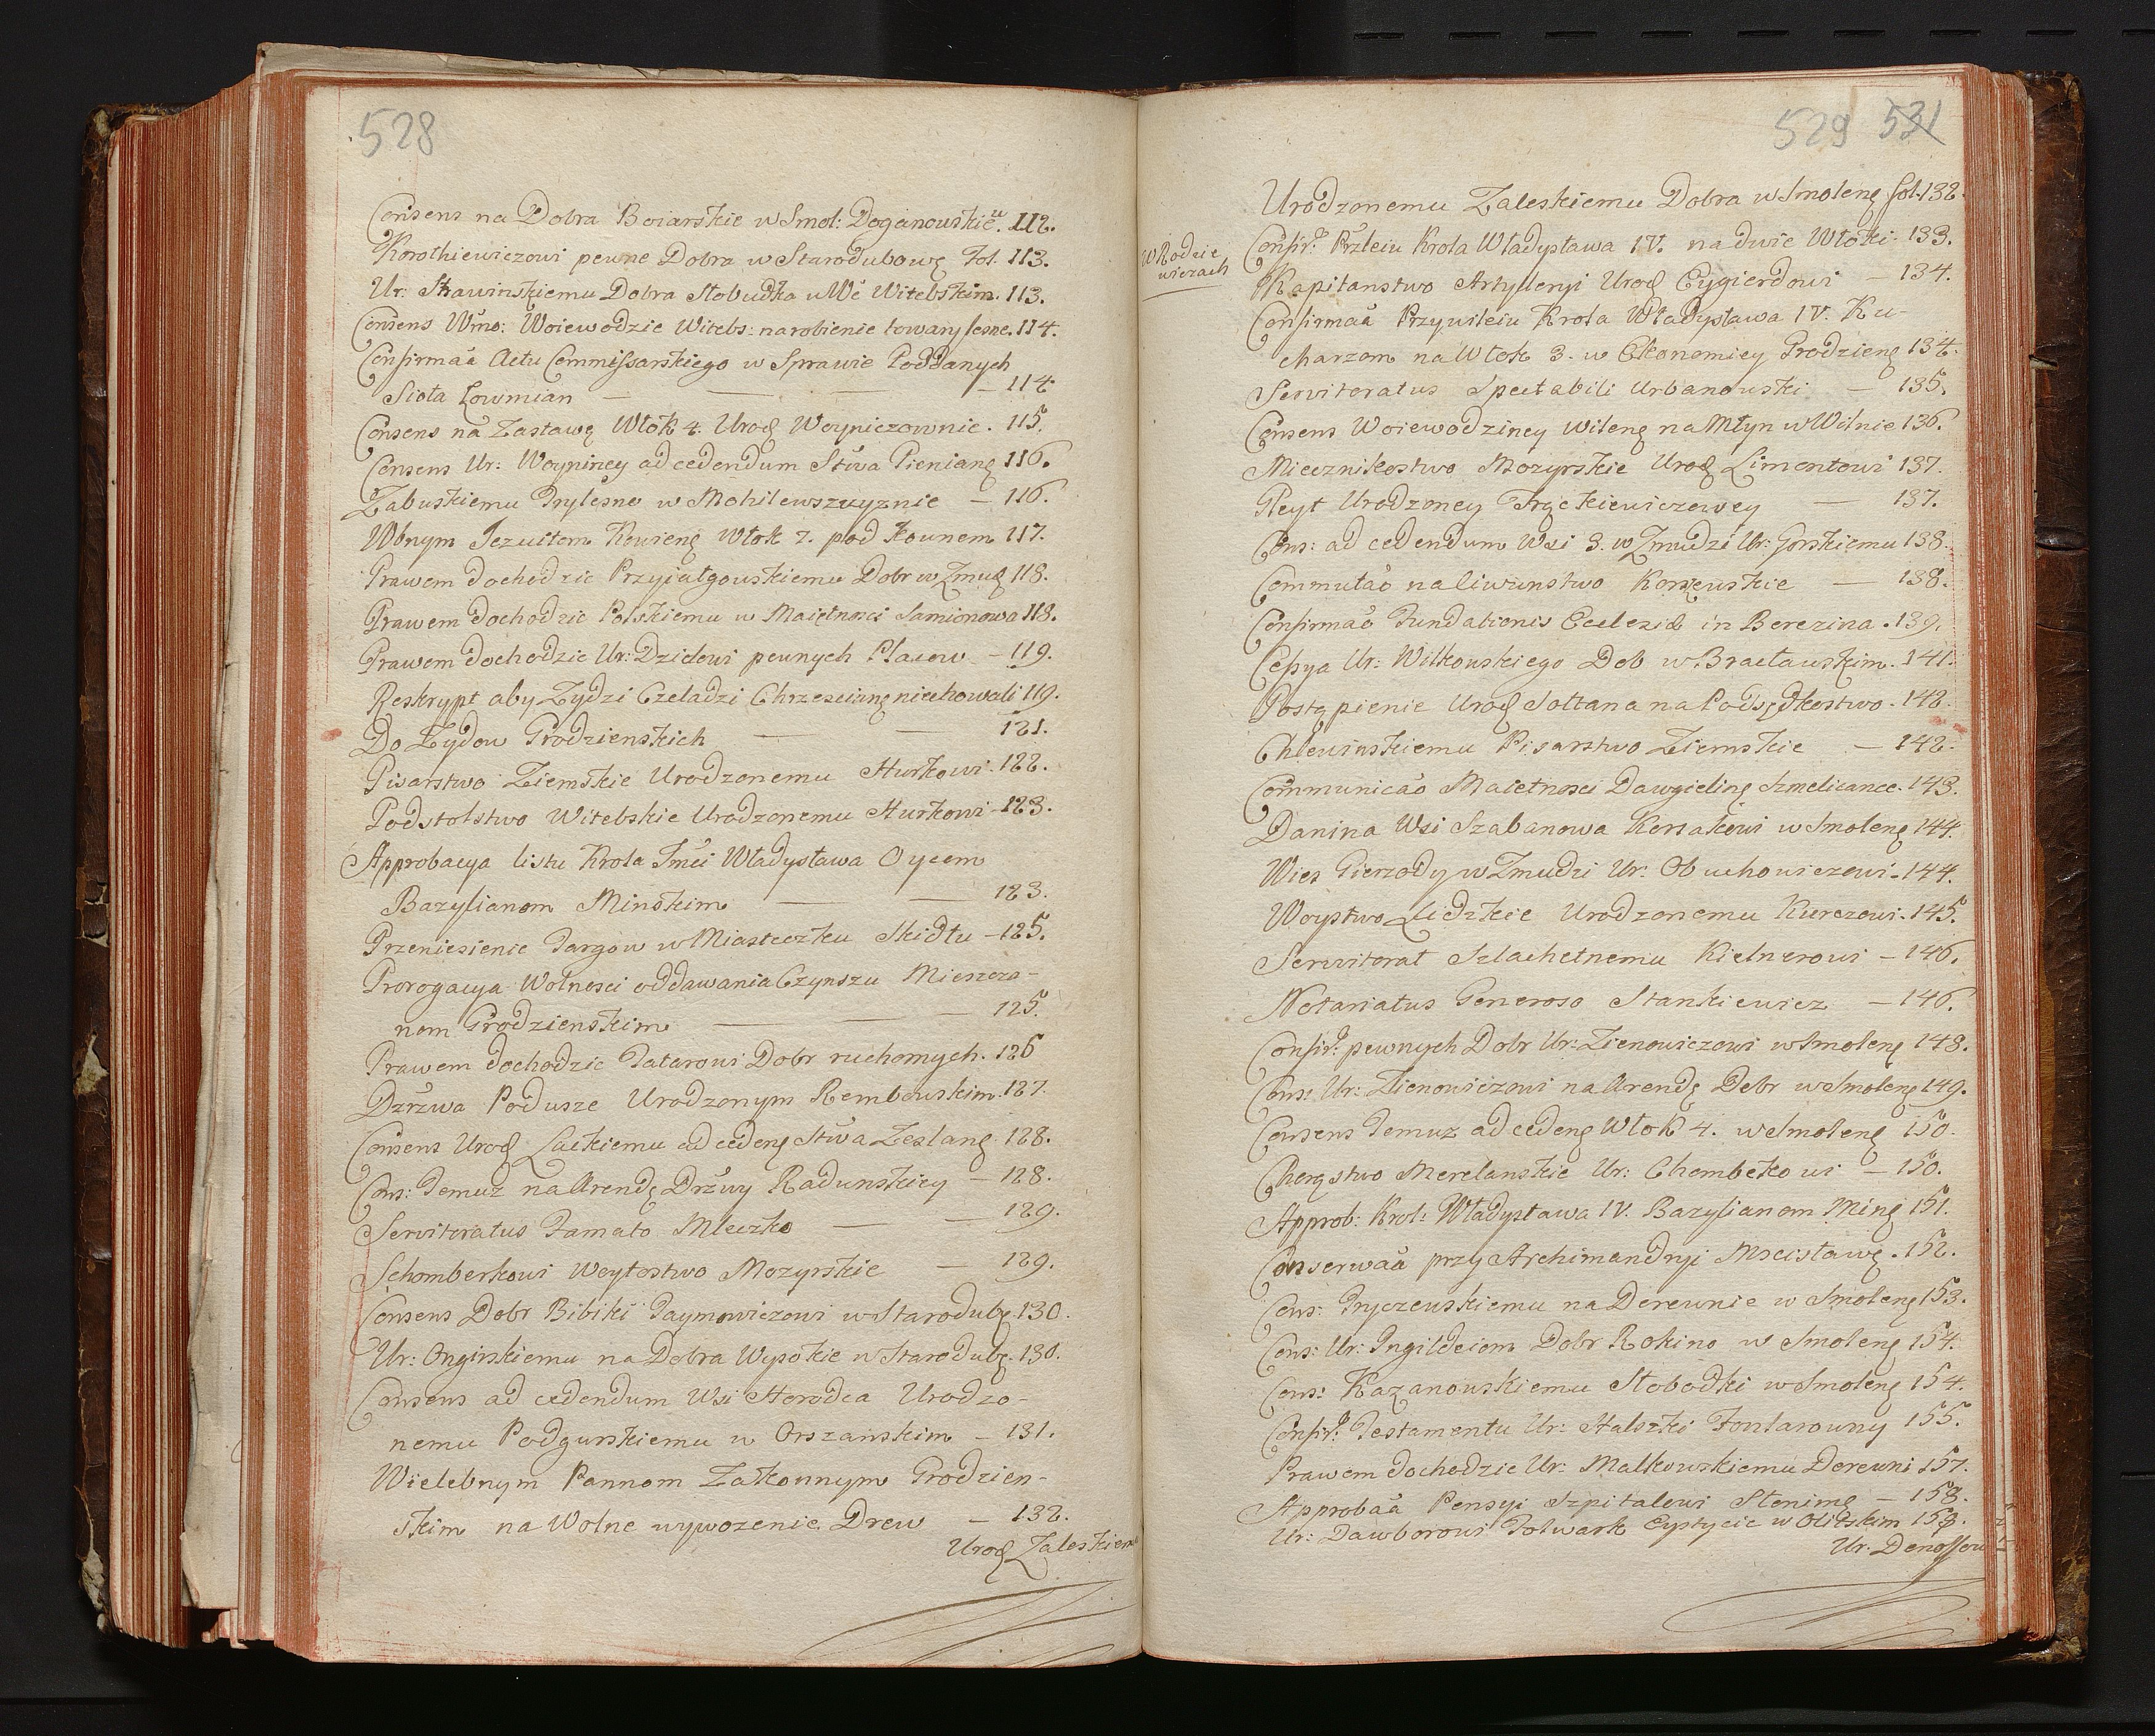 528
Consens na Dobra Boiarskie w Smol: Doganowskieu. 112.
Korotkiewiczowi pewne Dobra w Starodubowę Fol. 113.
Ur: Skawinskiemu Dobra Słobudka u We Witebskim. 113.
Consens Wmo: Woiewodzie Witebs: na robienie towary lesne. 114.
Confirmaa Actu Commissarskiego w Sprawie Poddanych
Sioła Łowmian — — — 114.
Consens na Zastawę Włok 4. Urod Woyniczownie. 115.
Consens Ur: Woyniney ad cedendum Stwa Pienianę 116.
Zabuskiemu Trylesno w Mohilewszczyznie — 116.
Wbnym Jezuitom Kowienę Włok 7. pod Kownem 117.
Prawem dochodzic Przyiałgowskiemu Dobr w Zmud 118.
Prawem dochodzic Polskiemu w Maiętnosci Samionowa 118.
Prawem dochodzic Ur: Dzidowi pewnych Placow — 119.
Reskrypt aby Zydzi Czeladzi Chrzescianę niechowali 119.
Do Zydow Grodzienskich — — 121.
Pisarstwo Ziemskie Urodzonemu Hurkowi. 122.
Podstolstwo Witebskie Urodzonemu Hurkowi — 123.
Approbacya listu Krola Jmći Władysława Oycom
Bazylianom Minskim — — 123.
Przeniesienie Targow w Miasteczku Skidlu — 125.
Prorogacya Wolnosci oddawania Czynszu Mieszcza-
nom Grodzienskim — — — 125.
Prawem dochodzic Tatarowi Dobr ruchomych. 126
Dzrzwa Podusze Urodzonym Rembowskim. 127.
Consens Urod Lackiemu ad cedenę Stwa Zeslanę 128.
Cons: Temuz na Arendę Drzwy Radunskiey — 128.
Servitoratus Famato Mleczko — — 129.
Schomberkowi Woytostwo Mozyrskie — 129.
Consens Dobr Bibiki Taymowiczowi w Starodubę. 130.
Ur: Onginskiemu na Dobra Wysokie w Starodubę. 130.
Consens ad cedendum Wsi Horodca Urodzo-
nemu Podgurskiemu w Orszanskim — 131.
Wielebnym Pannom Zakonnym Grodzien-
skim na Wolne wywozenie Drew — 132.
Urod Zaleskiem
529 531
Urodzonemu Zaleskiemu Dobra w Smolenę fol. 132.
w Rodzie
wiczach
Confir: Przleiu Krola Władysława IV. na dwie Włoki. 133.
Kapitanstwo Artyleryi Urod Eygierdowi — 134.
Confirmaa Przywileiu Krola Władysława IV. Ku-
charzom na Włok 3. w Ekonomiey Grodzienę 134.
Servitoratus Spectabili Urbanowski — 135.
Consens Woiewodziney Wilenę na Młyn w Wilnie 136.
Miecznikostwo Mozyrskie Urod Limontowi 137.
Gleyt Urodzoney Frąckiewiczowey — 137.
Cons: ad cedendum Wsi 3. w Zmudzi Ur: Gorskiemu 138.
Commutao na Ciwunstwo Korszewskie — 138.
Confirmao Fundationis Ecclesiæ in Berezina. 139.
Cessya Ur: Wilkowskiego Dob w Bracławskim. 141.
Postąpienie Urod Sołtana na Podsędkostwo. 142.
Chlewinskiemu Pisarstwo Ziemskie — 142.
Communicao Maiętnosci Dawgielinę Szmelicance. 143.
Danina Wsi Szabanowa Korsakowi w Smolenę 144.
Wies Gierzody w Zmudzi Ur: Obuchowiczowi. 144.
Woystwo Lidzkie Urodzonemu Kurczowi. 145.
Servitorat Szlachetnemu Kielnerowi — 146.
Notariatus Generoso Stankiewicz — 146.
Confir: pewnych Dobr Ur: Zienowiczowi w Smolenę 148.
Cons: Ur: Zienowiczowi na Arendę Dobr w Smolenę 149.
Consens Temuz ad cedenę Włok 4. w Smolenę 150.
Chorąstwo Merelanskie Ur: Chombełkowi — 150.
Approb: Krol: Władysława IV. Bazylianom Minę 151.
Conserwaa przy Archimandryi Mscisławę. 152.
Cons: Tryczewskiemu na Derewnie w Smolenę 153.
Cons: Ur: Ingildeiom Dobr Rokino w Smolenę 154.
Cons: Kazanowskiemu Słobodki w Smolenę 154.
Confir: Testamentu Ur: Halszki Tonlarowny 155.
Prawem dochodzic Ur: Małkowskiemu Derewni 157.
Approbaa Pensyi Szpitalowi Słonimę — 158.
Ur: Dawborowi Folwark Eystycie w Olitskim 159.
Ur. Denoffow